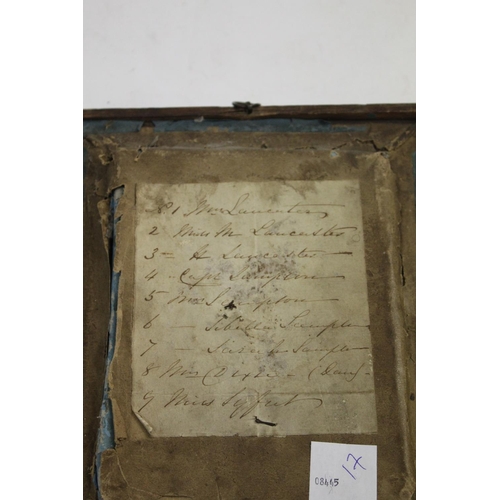 1 Mrs Lancaster
2 Miss M Lancaster
3 - A Lancaster
4 - Capt Sampson
5 Mrs Sampson
6 - Sibella Sampson
7 - Sampson
8 Mrs
9 Miss
08445
17